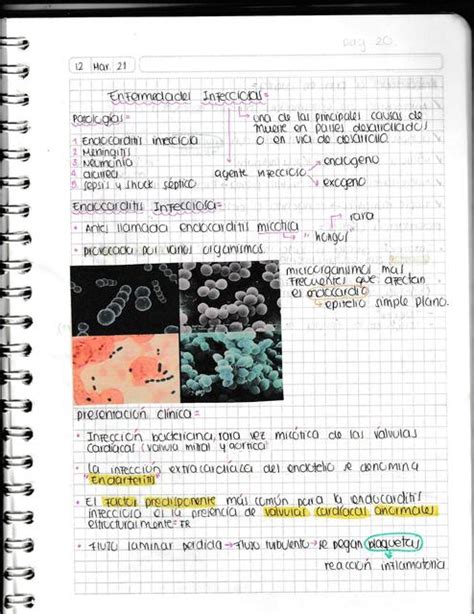 pag 20.
12 Mar. 21
Enfermedades Infecciosas=
Patologías=
1. Endocarditis infecciosa
2. Meningitis
3. Neumonía
4. diarrea
5. sepsis y shock séptico.
una de las principales causas de
muerte en países desarrollados
o en vía de desarrollo.
agente infeccioso
endogeno
exogeno
Endocarditis Infecciosa=
• Antes llamada endocarditis micotica
rara
"hongos"
• provocada por varios organismos.
microorganismos más
frecuentes que afectan
el endocardio
epitelio simple plano.
presentación clínica=
• Infección bacteriana, rara vez micótica de las válvulas
cardíacas (valvula mitral y aortica)
• la infección extracardiaca del endotelio se denomina
"Endarteritis"
• El factor predisponente más común para la endocarditis
infecciosa es la presencia de valvulas cardiacas anormales
estructuralmente= FR
• Flujo laminar perdida → Flujo turbulento → se pegan plaquetas
reacción inflamatoria